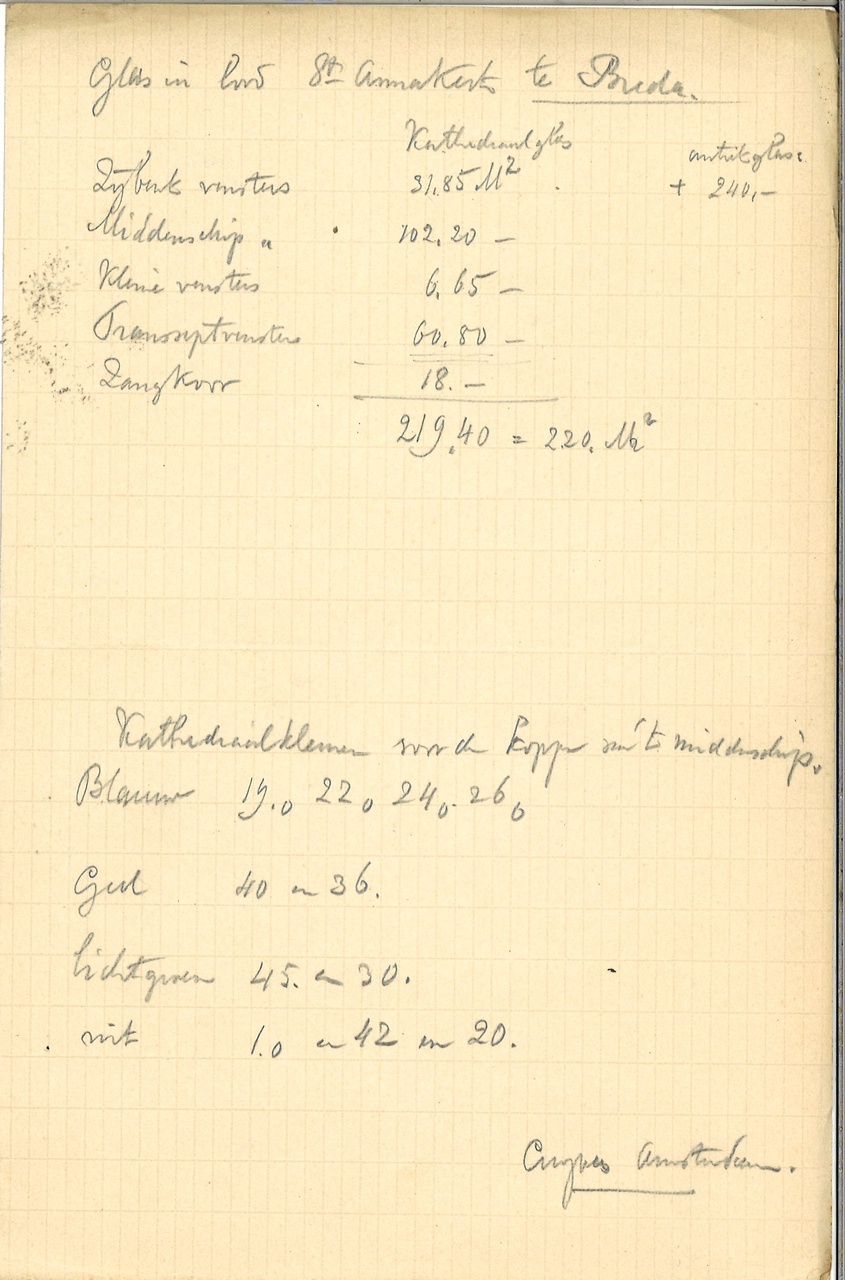 Glas in lood St Annakerk te Breda.
Kathedraalglas antikglas:
Zijbeuk vensters 31,85 M² + 240,-
Middenschip „ 102.20 —
Kleine vensters 6,65 —
Transeptvensters 60,80 —
Zangkoor 18.—
219,40 = 220. M²
Kathedraalkleuren voor de koppen van 't middenschip.
Blauw 19.0 22 0 24 0. 26 0
Geel 40 en 36.
lichtgroen 45. en 30.
wit 1.0 en 42 en 20.
Cuypers Amsterdam.